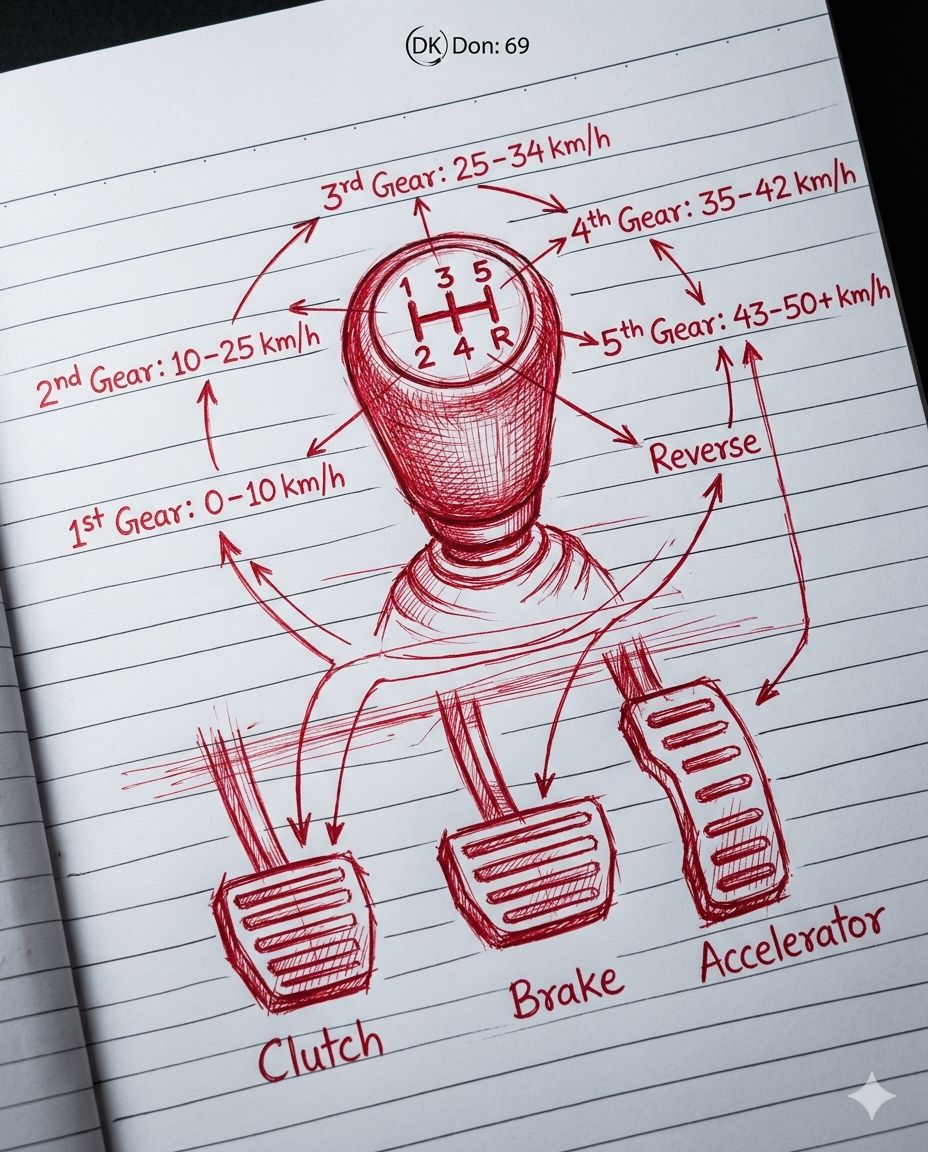 DK Don: 69
3rd Gear: 25-34 km/h
4th Gear: 35-42 km/h
1 3 5
2 4 R
2nd Gear: 10-25 km/h
5th Gear: 43-50+ km/h
Reverse
1st Gear: 0-10 km/h
Clutch
Brake
Accelerator